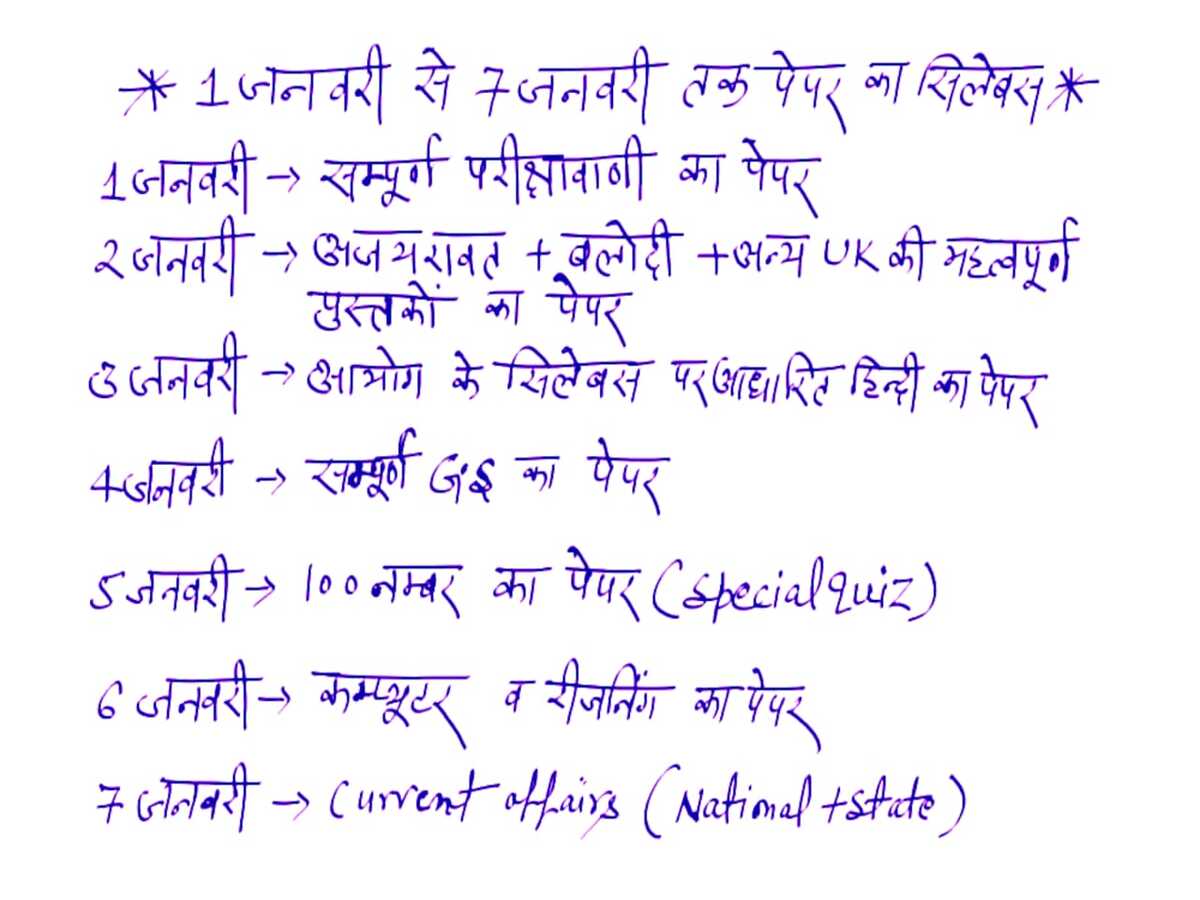 * 1 जनवरी से 7 जनवरी तक पेपर का सिलेबस *
1 जनवरी → सम्पूर्ण परीक्षावाणी का पेपर
2 जनवरी → अजय रावत + बलोदी + अन्य UK की महत्वपूर्ण
पुस्तकों का पेपर
3 जनवरी → आयोग के सिलेबस पर आधारित हिन्दी का पेपर
4 जनवरी → सम्पूर्ण G.S का पेपर
5 जनवरी → 100 नम्बर का पेपर (special quiz)
6 जनवरी → कम्प्यूटर व रीजनिंग का पेपर
7 जनवरी → Current affairs (National + state)